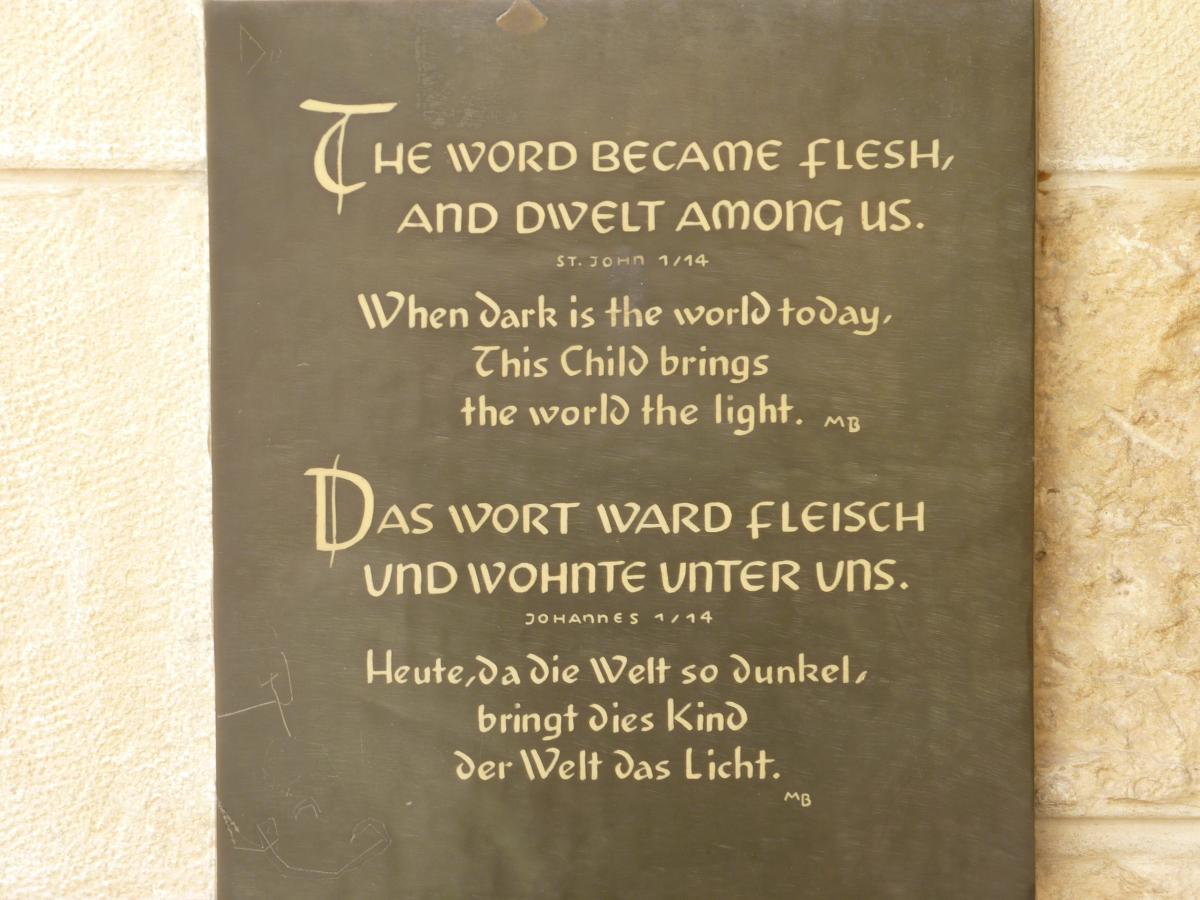 THE WORD BECAME FLESH,
AND DWELT AMONG US.
ST. JOHN 1/14
When dark is the world today,
This Child brings
the world the light. MB
DAS WORT WARD FLEISCH
UND WOHNTE UNTER UNS.
JOHANNES 1/14
Heute, da die Welt so dunkel,
bringt dies Kind
der Welt das Licht.
MB